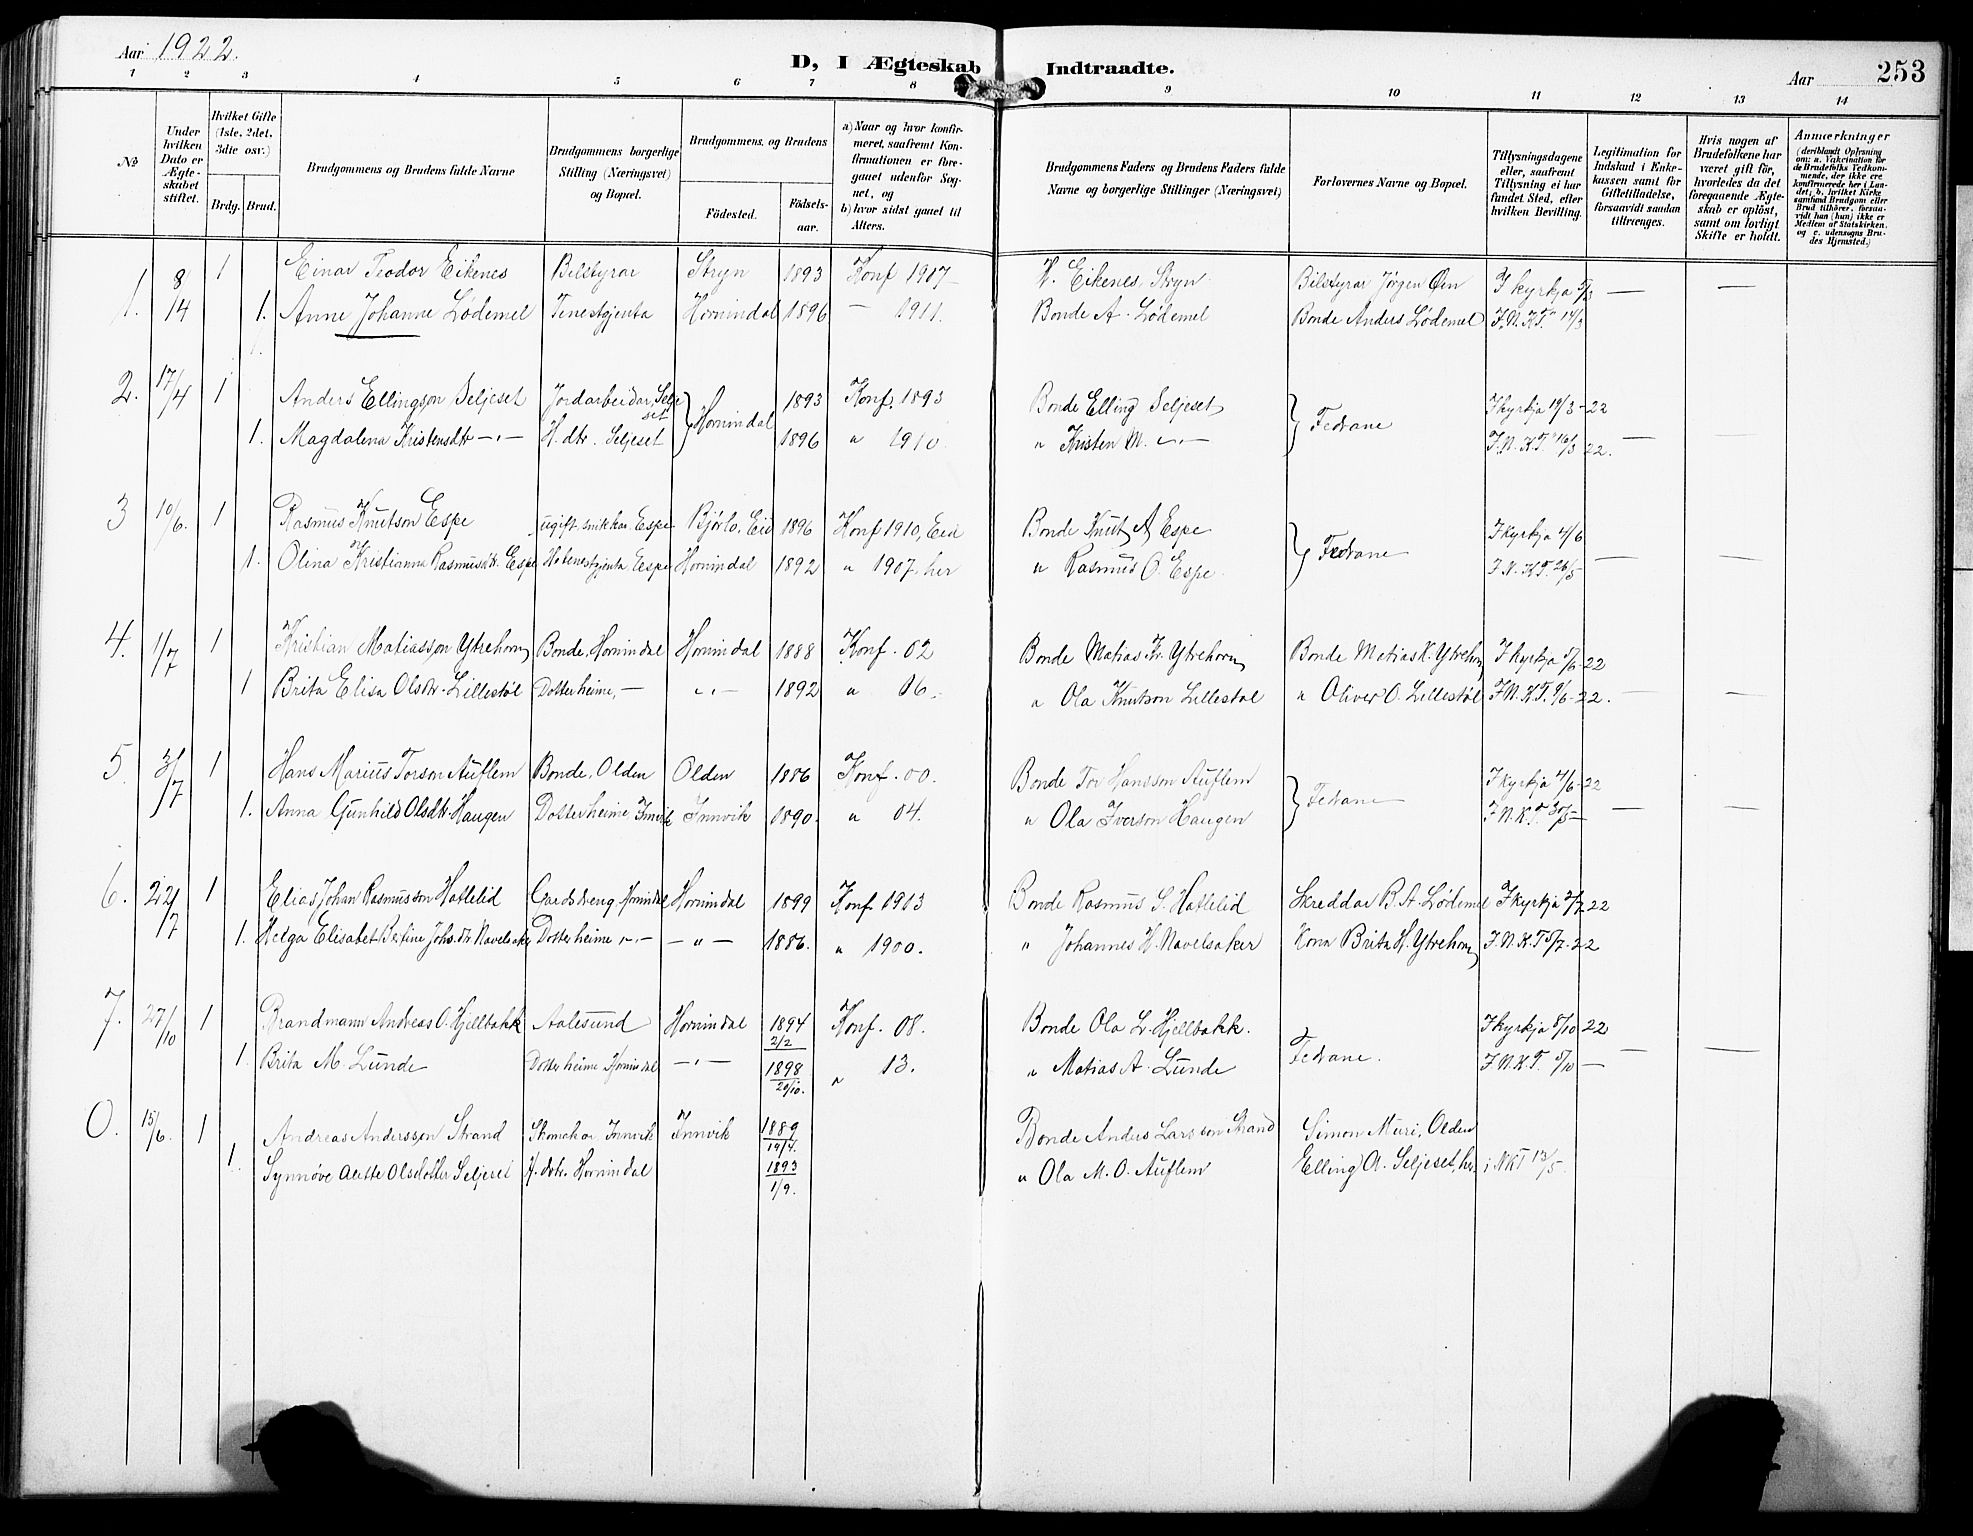 Aar 1922.
D, I Ægteskab Indtraadte.
Aar 253
1 2 3 4 5 6 7 8 9 10 11 12 13 14
No
Under hvilken Dato er Ægteskabet stiftet.
Hvilket Gifte (1ste, 2det, 3die osv.)
Brdg. Brud.
Brudgommens og Brudens fulde Navne
Brudgommens borgerlige Stilling (Næringsvei) og Bopæl.
Brudgommens og Brudens
Fødested.
Fødselsaar.
a) Naar og hvor konfirmeret, saafremt Konfirmationen er foregaaet udenfor Sognet, og
b) hvor sidst gaaet til Alters.
Brudgommens Faders og Brudens Faders fulde Navne og borgerlige Stillinger (Næringsvei)
Forlovernes Navne og Bopæl.
Tillysningsdagene eller, saafremt Tillysning ei har fundet Sted, efter hvilken Bevilling.
Legitimation for Indskud i Enkekassen samt for Giftetilladelse, forsaavidt saadan tiltrænges.
Hvis nogen af Brudefolkene har været gift før, hvorledes da det foregaaende Ægteskab er opløst, samt om lovligt Skifte er holdt.
Anmærkninger
(deriblandt Oplysning om: a. Vakcination for de Brudefolks Vedkommende, der ikke ere konfirmerede her i Landet; b. hvilket Kirkesamfund Brudgom eller Brud tilhører, forsaavidt han (hun) ikke er Medlem af Statskirken, og c. udensogns Brudes Hjemsted.)
1. 8/14 1 Einar Teodor Eikenes Bilstyrar Stryn 1893 Konf 1907 Eikenes Stryn Bilstyrar Jørgen Øen I kyrkja 5/3 — —
1. Anne Johanne Lødemel Tenestgjenta Hornindal 1896 — 1911. Bonde A. Lødemel Bonde Anders Lødemel I N. K. T. 14/3
2. 17/4 1 Anders Ellingson Seljeset Jordarbeidar, Seljeset Hornindal 1893 Konf. 1893 Bonde Elling Seljeset Fedrane I kyrkja 19/3-22
1. Magdalena Kristensdtr —„— H. dtr. Seljeset 1896 „ 1910. „ Kristen M. —„— I. N. K. T. 16/3 22. — —
3 10/6. 1 Rasmus Knutson Espe ugift. snikkar Espe Bjørlo, Eid 1896 Konf 1910, Eid Bonde Knut A Espe Fedrane I kyrkja 4/6
1. Olina Kristianna Rasmusdtr. Espe Espe Hornindal 1892 „ 1907. her „ Rasmus O. Espe. I. N. K. T. 26/5 — —
4. 1/7 1 Kristian Matiasson Ytrehorn Bonde, Hornindal Hornindal 1888 Konf. 02 Bonde Matias Kr. Ytrehorn Bonde Matias K. Ytrehorn I kyrkja 5/6-22
1 Brita Elisa Olsdtr. Lillestøl Dotter heime, — „ — 1892 „ 06. „ Ola Knutson Lillestøl „ Oliver O. Lillestøl I N. K. T. 9/6-22. — —
5. 3/7 1 Hans Marius Torson Auflem Bonde, Olden Olden 1886 Konf. 00. Bonde Tor Hansson Auflem Fedrane I kyrkja 4/6-22
1. Anna Gunhild Olsdtr. Haugen Dotter heime, Innvik Innvik 1890. „ 04. „ Ola Iverson Haugen I. N. K. T. 30/5 — — —
6. 22/7 1 Elias Johan Rasmusson Hatlelid Gardsdreng, Hornindal Hornindal 1899 Konf. 1913 Bonde Rasmus S. Hatlelid Skreddar B. A. Lødemel I kyrkja 2/7 22
1. Helga Elisabet Bertine Johs.dtr Navelsaker Dotter heime —„— — „ — 1886. „ 1900. „ Johannes H. Navelsaker Kona Brita H. Ytrehorn I. N. K. T 5/7-22
7. 27/10 1 Brandmann Andreas O. Hjellbakk Aalesund Hornindal 1894 2/2 Konf. 08. Bonde Ola L. Hjellbakk. Fedrane. I kyrkja 8/10 22
1. Brita M. Lunde Dotter heime Hornindal —„— 1898 20/10. „ 13. „ Matias A. Lunde I. N. K. T. 5/10 — — —
0. 15/6. 1 Andreas Anderssøn Strand Skomakar, Innvik Innvik 1889 14/4. Bonde Anders Larsson Strand Simon Muri, Olden
1. Synnøve Alette Olsdotter Seljeset H. dtr. Hornindal 1893 1/9. „ Ola M. O. Auflem Elling A. Seljeset, her. i NKT 13/5.